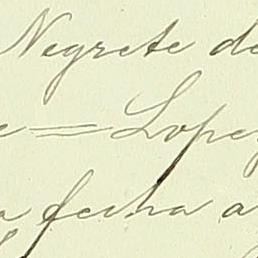 Negrete de
e = Lopez
a fecha a